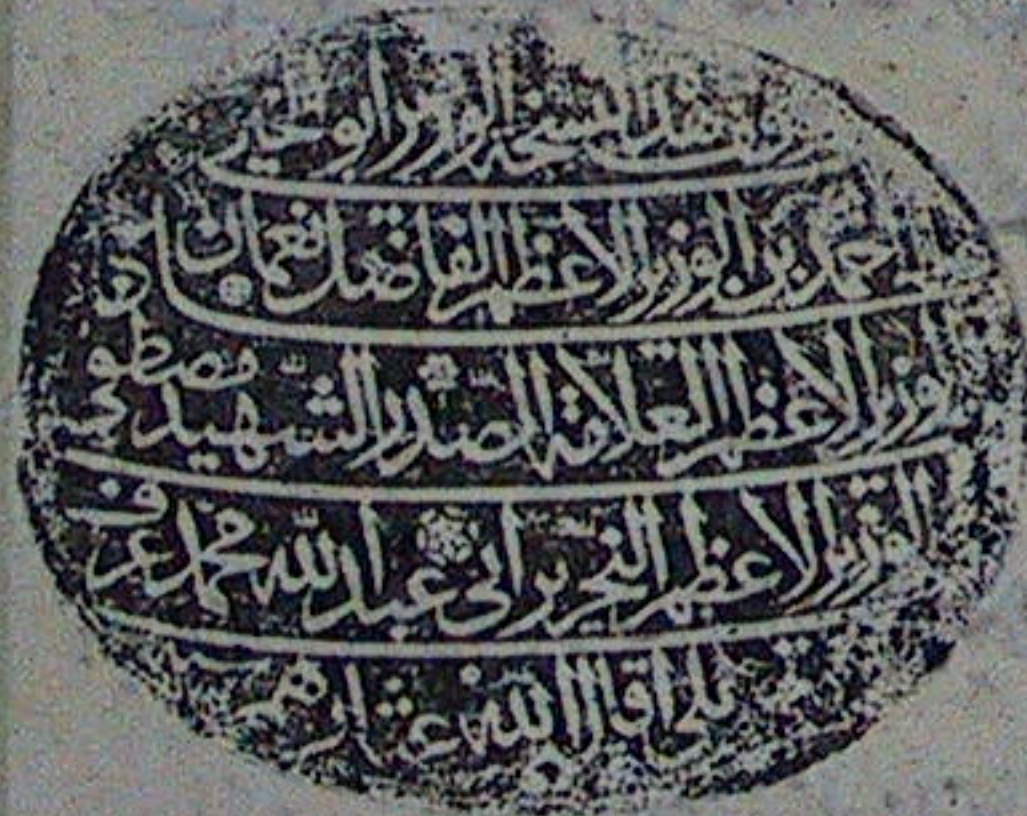 وقف هذه النسخة الوزير ابو الخير
احمد بن الوزير الاعظم الفاضل نعمان بن
الوزير الاعظم العلامة الصدر الشهيد مصطفى
الوزير الاعظم النحرير ابى عبد الله محمد عرف
اقال الله عثارهم